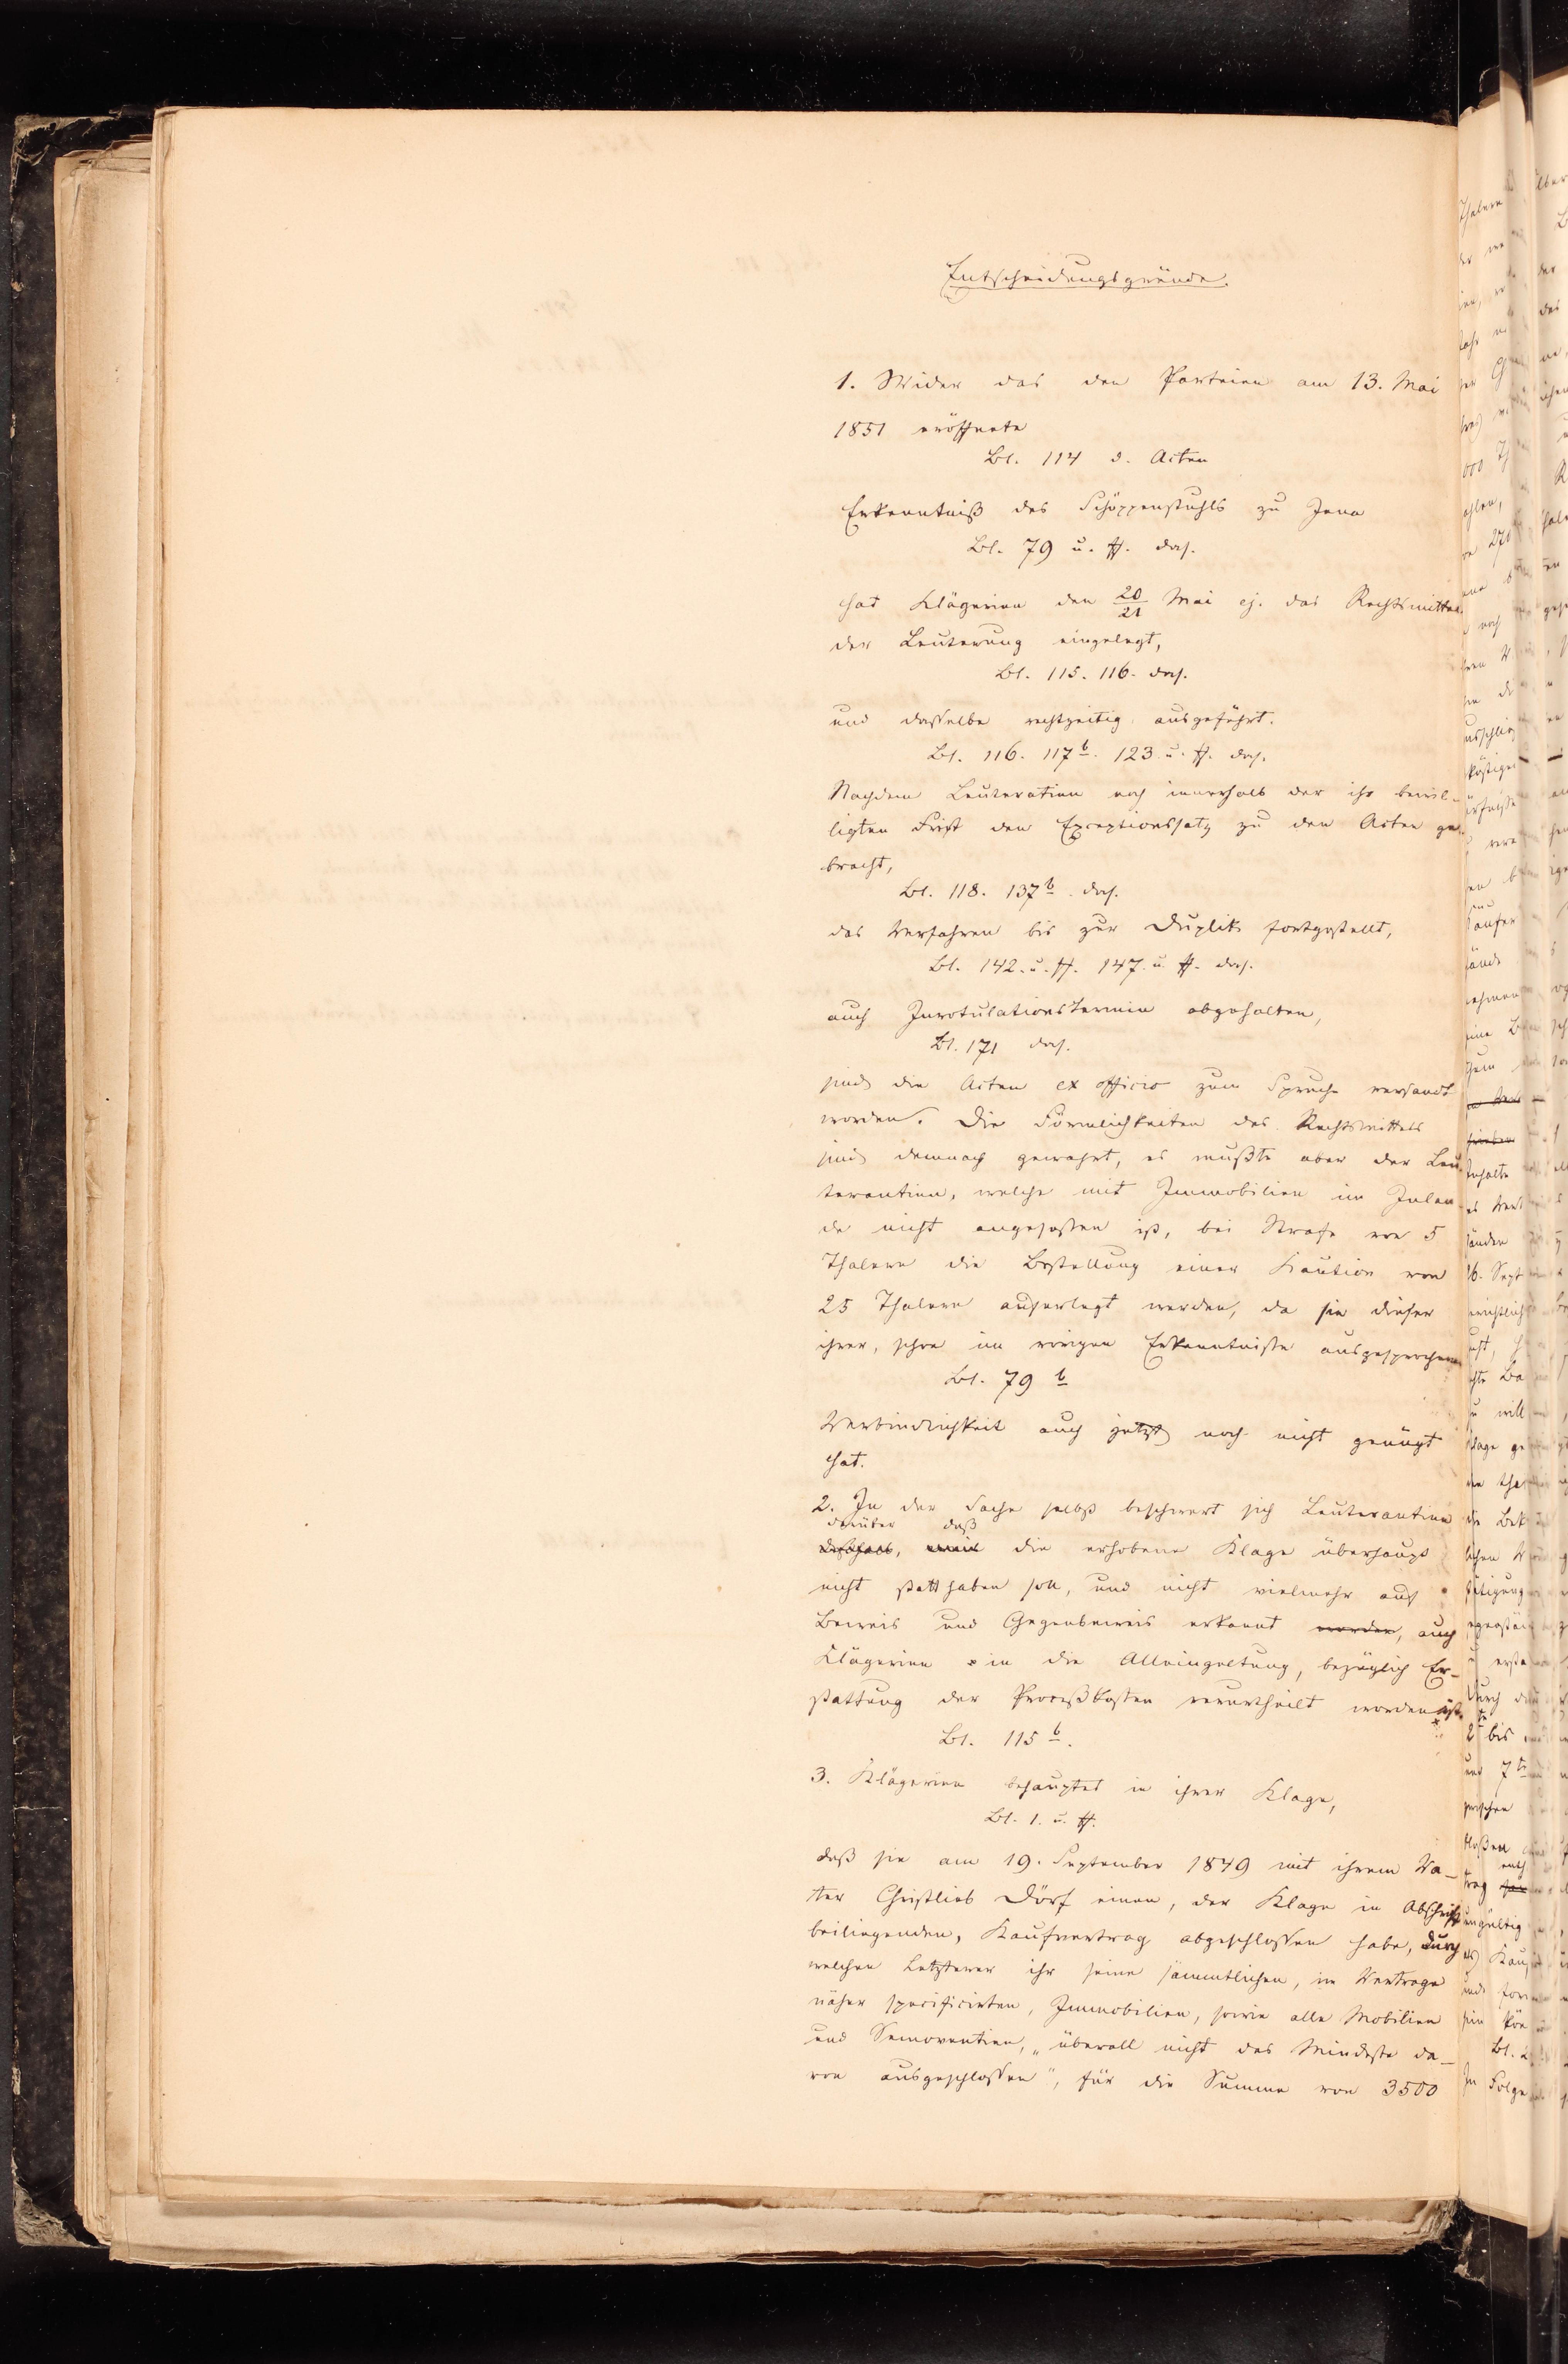 Entscheidungsgründe.
1. Wider das den Parteien am 13. Mai
1851 eröffnete
Bl. 114 d. Acten
Erkenntniß des Schöppenstuhls zu Jena
Bl. 79 u. ff. das.
hat Klägerien den 20/21 Mai ej. das Rechtsmittel
der Leuterung eingelegt,
Bl. 115. 116. das.
und dasselbe rechtzeitig ausgeführt.
Bl. 116. 117b. 123 u. ff. das.
Nachdem Leuteratien noch innerhalb der ihr bewil-
ligten Frist den Exceptionssatz zu den Acten ge-
bracht,
Bl. 118. 137b. das.
das Verfahren bis zur Duplik fortgestellt,
Bl. 142. u. ff. 147. u. ff. das.
auch Inrotulationstermin abgehalten,
Bl. 171 das.
sind die Acten ex officio zum Spruche versandt
worden. Die Förmlichkeiten des Rechtsmittels
sind demnach gewahrt, es mußte aber der Leu-
terantien, welche mit Immobilien im Inlan-
de nicht angesessen ist, bei Strafe von 5
Thalern die Bestellung einer Kaution von
25 Thalern auferlegt werden, da sie dieser
ihrer, schon im vorigen Erkenntnisse ausgesprochenen
Bl. 79 b
Verbindlichkeit auch jetzt noch nicht genügt
hat.
2. In der Sache selbst beschwert sich Leuterantien
darüber daß
deßhalb, weil die erhobene Klage überhaupt
nicht statt haben soll, und nicht vielmehr auf
Beweis und Gegenbeweis erkannt worden, auch
Klägerien in die Alleingeltung, bezüglich Er-
stattung der Proceßkosten verurtheilt worden ist.
Bl. 115 b.
3. Klägerien behauptet in ihrer Klage,
Bl. 1. u. ff.
daß sie am 19. September 1849 mit ihrem Va-
ter Christlieb Dörf einen, der Klage in Abschrift
beiliegenden, Kaufvertrag abgeschlossen habe, durch
welchen Letzterer ihr seine sämmtlichen, im Vertrage
näher specificirten, Immobilien, sowie alle Mobilien
und Semoventien, „überall nicht das Mindeste da-
von ausgeschlossen", für die Summe von 3500